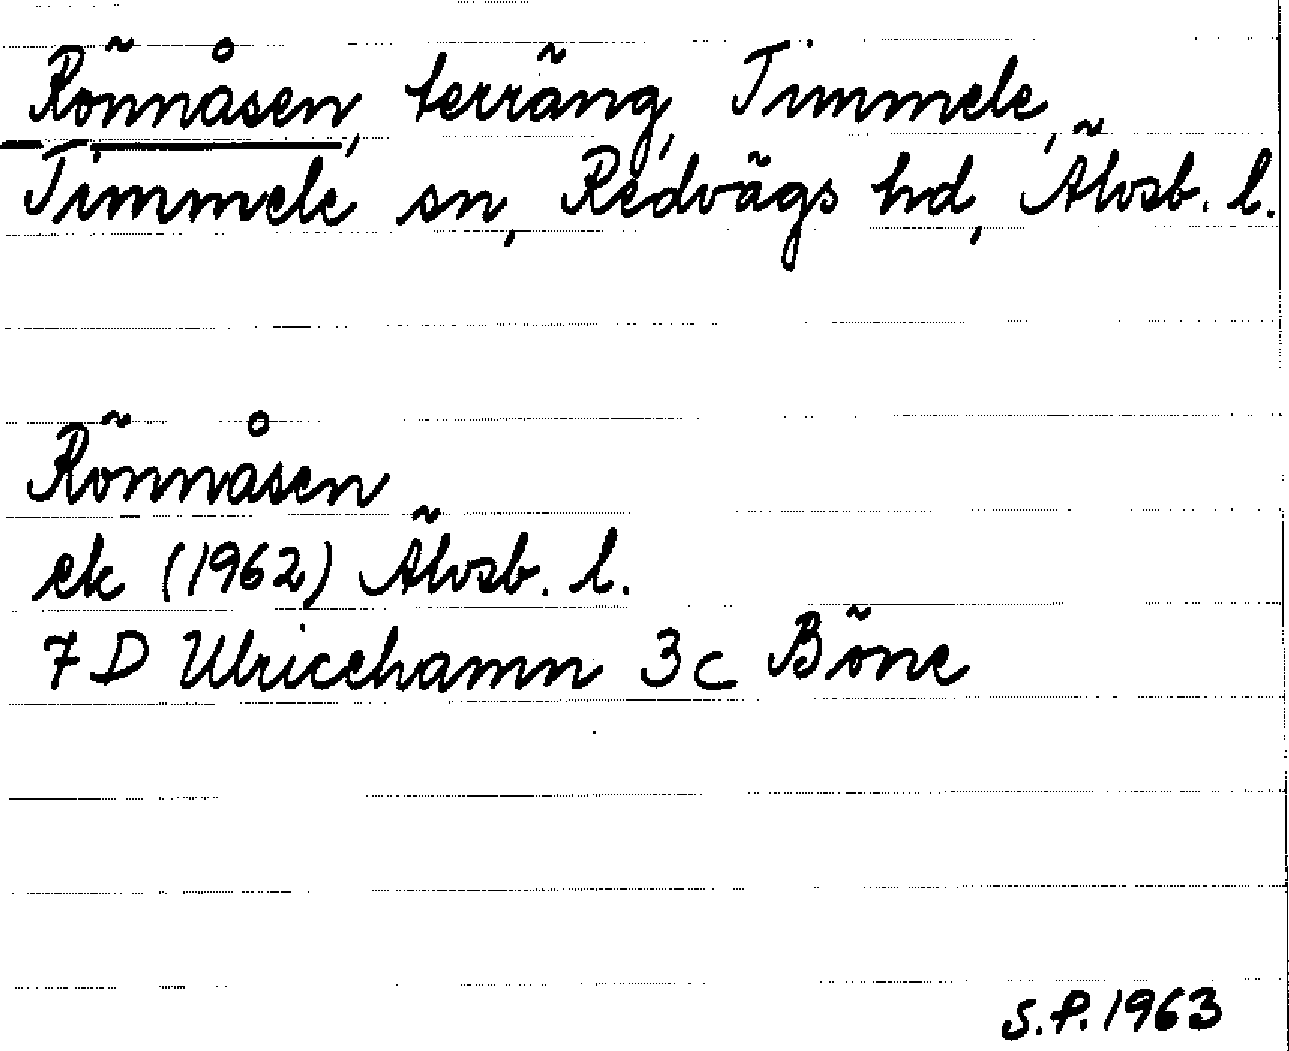 Rönnåsen, terräng, Timmele,
Timmele sn, Redvägs hd, Älvsb. l.
Rönnåsen
ek (1962) Älvsb. l.
7 D Ulricehamn 3c Böne
S.P. 1963